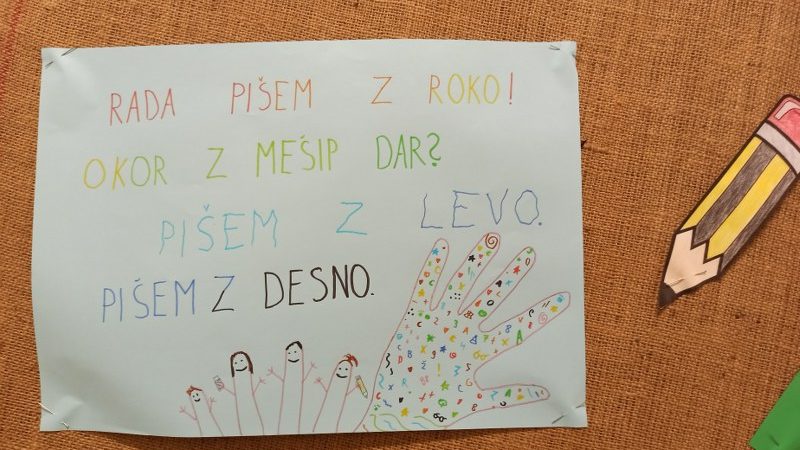 RADA PIŠEM Z ROKO!
OKOR Z MEŠIP DAR?
PIŠEM Z LEVO.
PIŠEM Z DESNO.